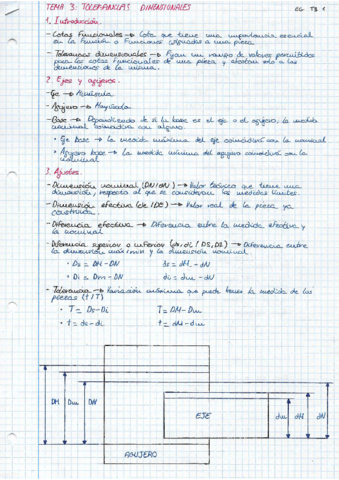 TEMA 3: TOLERANCIAS DIMENSIONALES
EG T3 1
1. Introducción.
- Cotas Funcionales → Cota que tiene una importancia esencial
en la función o funciones asignadas a una pieza.
- Tolerancias dimensionales → Fijan un rango de valores permitidos
para las cotas funcionales de una pieza, y afectan solo a las
dimensiones de la misma.
2. Ejes y agujeros.
- Eje → Minúscula
- Agujero → Mayúscula
- Base → Dependiendo de si la base es el eje o el agujero, la medida
nominal coincidirá con alguno.
• Eje base → la medida máxima del eje coincidirá con la nominal
• Agujero base → la medida mínima del agujero coincidirá con la
nominal
3. Ajustes.
- Dimensión nominal (DN/dN) → Valor teórico que tiene una
dimensión, respecto al que se consideran las medidas límites.
- Dimensión efectiva (de/DE) → Valor real de la pieza ya
construida
- Diferencia efectiva → Diferencia entre la medida efectiva y
la nominal
- Diferencia superior o inferior (ds,di / DS,DI) → Diferencia entre
la dimensión máx/mini y la dimensión nominal.
• Ds = DM - DN ds = dM - dN
• Di = Dm - DN di = dm - dN
- Tolerancia → Variación máxima que puede tener la medida de las
piezas (t/T)
• T = Ds - Di T = DM - Dm
• t = ds - di t = dM - dm
DM Dm DN EJE dm dM dN
AGUJERO